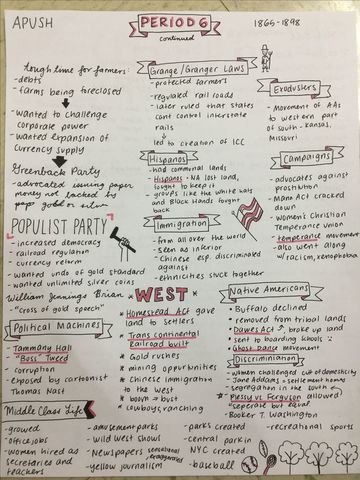 APUSH
PERIOD 6
continued
1865-1898
tough time for farmers:
-debts
-farms being foreclosed
-wanted to challenge
corporate power
-wanted expansion of
currency supply
Greenback Party
-advocated issuing paper
money not backed by
gold or silver
POPULIST PARTY
-increased democracy
-railroad regulation
-currency reform
-wanted undo of gold standard
-wanted unlimited silver coins
William Jennings Brian
-"cross of gold speech"
Political Machines
-Tammany Hall
-"Boss" Tweed
-corruption
-exposed by cartoonist
Thomas Nast
Grange/Granger Laws
-protected farmers
-regulated rail roads
-later ruled that states
cant control interstate
rails
led to creation of ICC
Hispanos
-had communal lands
-Hispanos - NA lost land,
fought to keep it
-groups like the white hats
and Black Hands fought
back
Immigration
-from all over the world
-seen as inferior
-Chinese esp. discriminated
against
-ethnicities stuck together
WEST
Homestead Act gave
land to settlers
Trans continental
railroad built
Gold rushes
mining opportunities
Chinese immigration
to the west
boom → bust
cowboys, ranching
Exodusters
-Movement of AAs
to western part
of south - Kansas,
Missouri
Campaigns
-advocates against
prostitution
-Mann Act cracked
down
-Women's Christian
Temperance Union
-temperance movement
-also went along
w/ racism, xenophobia
Native Americans
-Buffalo declined
-removed from tribal lands
-Dawes Act broke up land
-sent to boarding schools
-Ghost Dance movement
Discrimination
-women challenged cult of domesticity
-Jane Addams = settlement homes
-segregation in the south
-Plessy vs Ferguson allowed
"seperate but equal"
-Booker T. Washington
Middle Class Life
-growed
-office jobs
-women hired as
secretaries and
teachers
-amusement parks
-wild west shows
-Newspapers sensational, exaggerated
-yellow journalism
-parks created
-central park in
NYC created
-baseball
-recreational sports